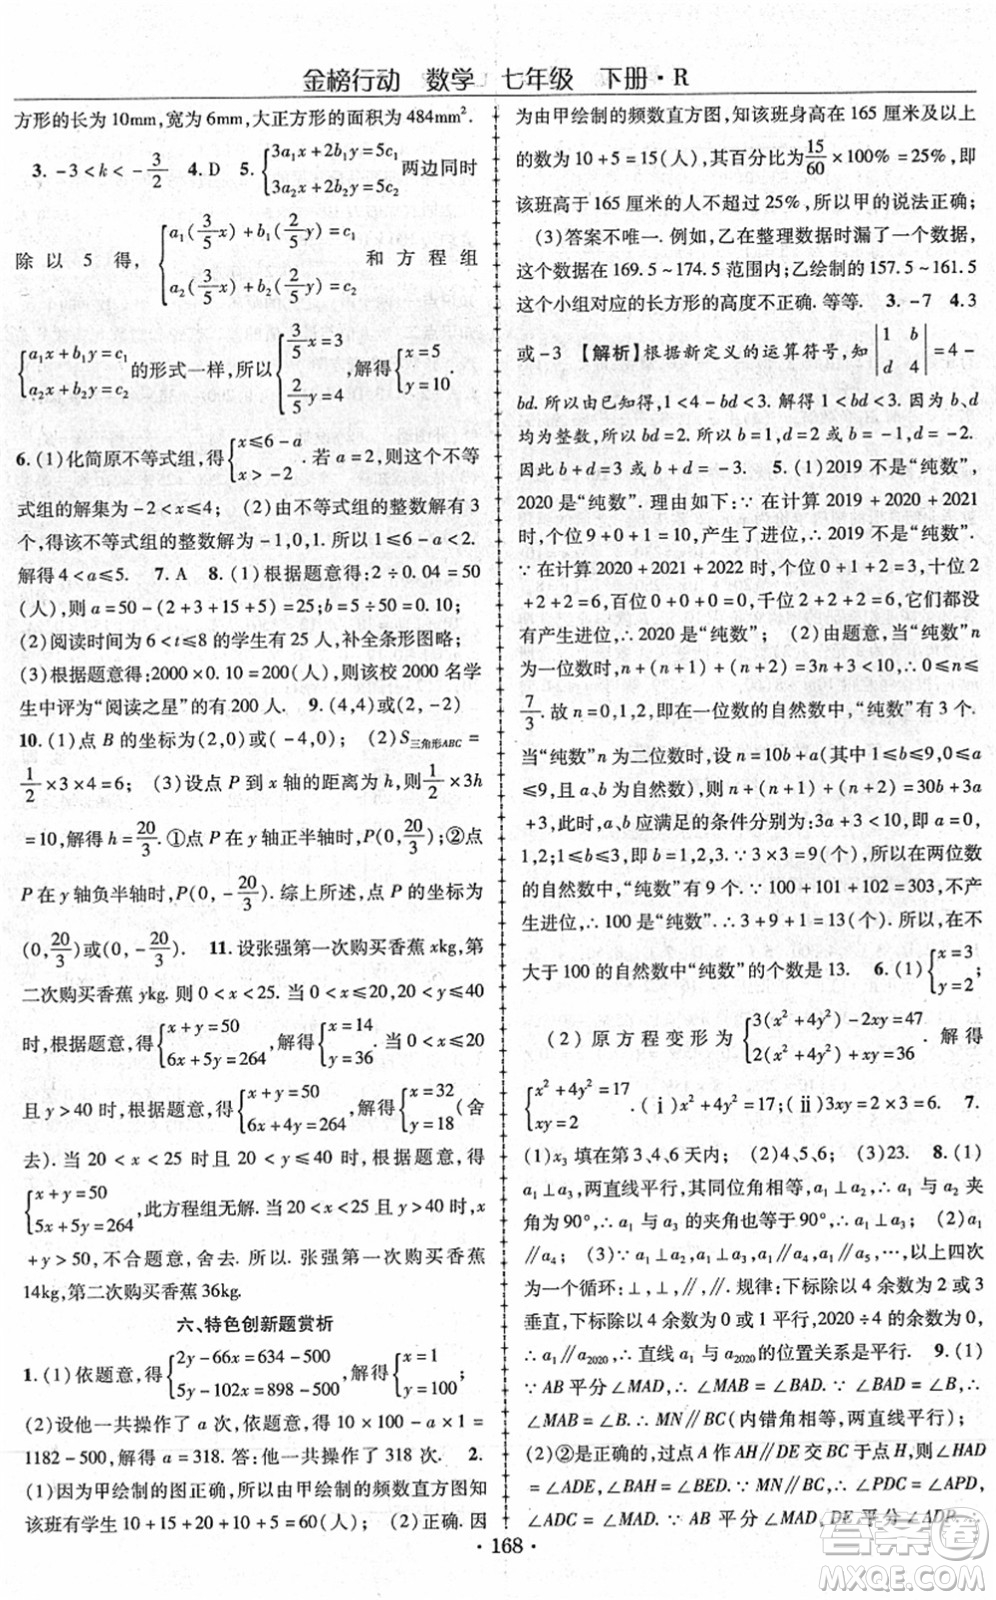 金榜行动 数学 七年级 下册·R
方形的长为10mm,宽为6mm,大正方形的面积为484mm².
3. -3<k<-3/2 4. D 5. {3a₁x+2b₁y=5c₁ 3a₂x+2b₂y=5c₂ 两边同时
除以5得, {a₁(3/5x)+b₁(2/5y)=c₁ a₂(3/5x)+b₂(2/5y)=c₂ 和方程组
{a₁x+b₁y=c₁ a₂x+b₂y=c₂ 的形式一样,所以{3/5x=3 2/5y=4 ,解得{x=5 y=10.
6. (1)化简原不等式组,得{x≤6-a x>-2 .若a=2,则这个不等
式组的解集为-2<x≤4; (2)由不等式组的整数解有3
个,得该不等式组的整数解为-1,0,1.所以1≤6-a<2.
解得4<a≤5. 7. A 8. (1)根据题意得:2÷0.04=50
(人),则a=50-(2+3+15+5)=25;b=5÷50=0.10;
(2)阅读时间为6<t≤8的学生有25人,补全条形图略;
(3)根据题意得:2000×0.10=200(人),则该校2000名学
生中评为“阅读之星”的有200人. 9. (4,4)或(2,-2)
10. (1)点B的坐标为(2,0)或(-4,0); (2)S三角形ABC=
1/2×3×4=6; (3)设点P到x轴的距离为h,则1/2×3h
=10,解得h=20/3.①点P在y轴正半轴时,P(0,20/3);②点
P在y轴负半轴时,P(0,-20/3).综上所述,点P的坐标为
(0,20/3)或(0,-20/3). 11. 设张强第一次购买香蕉xkg,第
二次购买香蕉ykg.则0<x<25.当0<x≤20,20<y≤40
时,根据题意,得{x+y=50 6x+5y=264 ,解得{x=14 y=36 .当0<x≤20
且y>40时,根据题意,得{x+y=50 6x+4y=264 ,解得{x=32 y=18 (舍
去).当20<x<25时且20<y≤40时,根据题意,得
{x+y=50 5x+5y=264 ,此方程组无解.当20<x<25时且y>40时,x
+y>50,不合题意,舍去.所以.张强第一次购买香蕉
14kg,第二次购买香蕉36kg.
六、特色创新题赏析
1. (1)依题意,得{2y-66x=634-500 5y-102x=898-500 ,解得{x=1 y=100
(2)设他一共操作了a次,依题意,得10×100-a×1=
1182-500,解得a=318.答:他一共操作了318次. 2.
(1)因为甲绘制的图正确,所以由甲绘制的频数直方图知
该班有学生10+15+20+10+5=60(人); (2)正确.因
为由甲绘制的频数直方图,知该班身高在165厘米及以上
的数为10+5=15(人),其百分比为15/60×100%=25%,即
该班高于165厘米的人不超过25%,所以甲的说法正确;
(3)答案不唯一.例如,乙在整理数据时漏了一个数据,
这个数据在169.5~174.5范围内;乙绘制的157.5~161.5
这个小组对应的长方形的高度不正确.等等. 3. -7 4. 3
或-3 【解析】根据新定义的运算符号,知|1 b d 4|=4-
bd.所以由已知得,1<4-bd<3.解得1<bd<3.因为b、d
均为整数,所以bd=2.则b=1,d=2或b=-1,d=-2.
因此b+d=3或b+d=-3. 5. (1)2019不是“纯数”,
2020是“纯数”.理由如下:∵在计算2019+2020+2021
时,个位9+0+1=10,产生了进位,∴2019不是“纯数”.
∵在计算2020+2021+2022时,个位0+1+2=3,十位2
+2+2=6,百位0+0+0=0,千位2+2+2=6,它们都没
有产生进位,∴2020是“纯数”; (2)由题意,当“纯数”n
为一位数时,n+(n+1)+(n+2)=3n+3<10,∴0≤n≤
7/3.故n=0,1,2,即在一位数的自然数中,“纯数”有3个.
当“纯数”n为二位数时,设n=10b+a(其中1≤b≤9,0≤a
≤9,且a、b为整数),则n+(n+1)+(n+2)=30b+3a
+3,此时,a、b应满足的条件分别为:3a+3<10,即a=0,
1,2;1≤b≤3,即b=1,2,3.∵3×3=9(个),所以在两位数
的自然数中,“纯数”有9个.∵100+101+102=303,不产
生进位,∴100是“纯数”.∴3+9+1=13(个).所以,在不
大于100的自然数中“纯数”的个数是13. 6. (1){x=3 y=2;
(2)原方程变形为{3(x²+4y²)-2xy=47 2(x²+4y²)+xy=36 .解得
{x²+4y²=17 xy=2 .(ⅰ)x²+4y²=17;(ⅱ)3xy=2×3=6. 7.
(1)x₃填在第3、4、6天内; (2)4、5、6; (3)23. 8. (1)
∵a₁⊥a₃,两直线平行,其同位角相等,∴a₁与a₂夹
角为90°,∴a₁与a₃的夹角也等于90°,∴a₁⊥a₃; (2)a₁
∥a₄; (3)∵a₁⊥a₂,a₁⊥a₃,a₁∥a₄,a₁∥a₅,…,以上四次
为一个循环:⊥,⊥,∥,∥.规律:下标除以4余数为2或3
垂直,下标除以4余数为0或1平行,2020÷4的余数为0,
∴a₁∥a₂₀₂₀,∴直线a₁与a₂₀₂₀的位置关系是平行. 9. (1)
∵AB平分∠MAD,∴∠MAB=∠BAD=∠B,
∴AM∥BC(内错角相等,两直线平行);
(2)②是正确的,过点A作AH∥DE交BC于点H,则∠HAD
=∠ADE,∠BAH=∠BED.∵AM∥BC,∴∠PDC=∠APD,
∠ADC=∠MAD.∵AB平分∠MAD,DE平分∠ADP,
·168·
答案圈
MXQE.COM